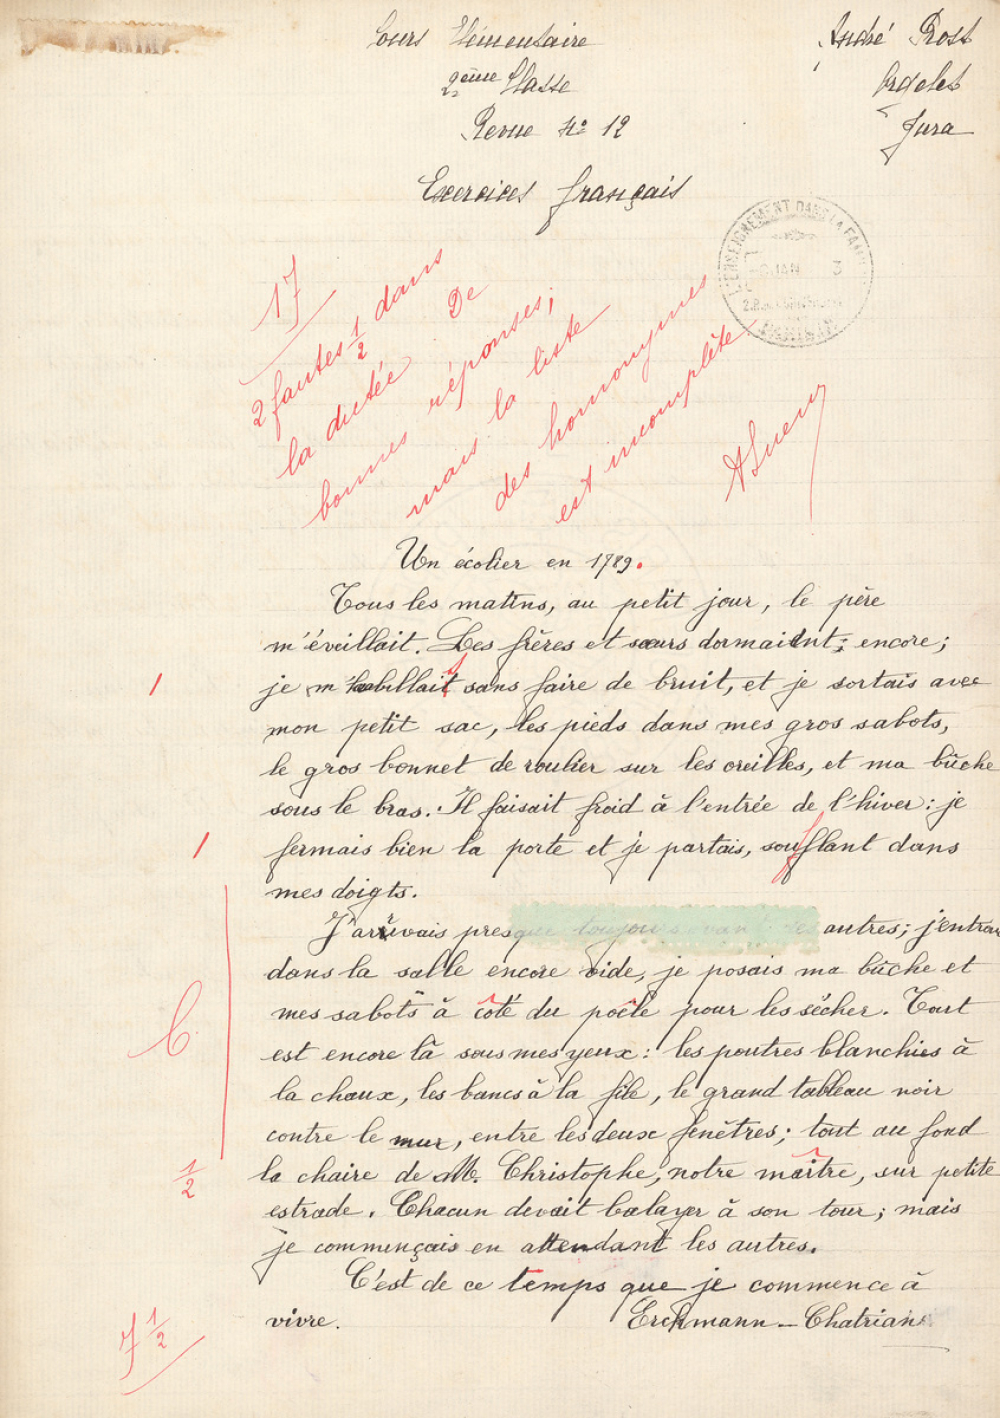 Cours Élémentaire
2ème Classe
Revue No 12
André Prost
Orgelet
Jura
Exercices français
L'ENSEIGNEMENT DANS LA FAMI
JAN 3
17
2 fautes 1/2 dans
la dictée De
bonnes réponses;
mais la liste
des homonymes
est incomplète
Un écolier en 1789.
Tous les matins, au petit jour, le père
m'éveillait. Les frères et sœurs dormaient; encore;
1 je m'habillait s sans faire de bruit, et je sortais avec
mon petit sac, les pieds dans mes gros sabots,
le gros bonnet de roulier sur les oreilles, et ma bûche
sous le bras. Il faisait froid à l'entrée de l'hiver: je
1 fermais bien la porte et je partais, soufflant dans
mes doigts.
J'arrivais presque toujours avant les autres; j'entrai
dans la salle encore vide, je posais ma bûche et
mes sabots à côté du poêle pour les sécher. Tout
est encore là sous mes yeux: les poutres blanchies à
la chaux, les bancs à la file, le grand tableau noir
contre le mur, entre les deux fenêtres; tout au fond
1/2 la chaire de M. Christophe, notre maître, sur petite
estrade. Chacun devait balayer à son tour; mais
je commençais en attendant les autres.
C'est de ce temps que je commence à
vivre. Erckmann-Chatrian
7 1/2